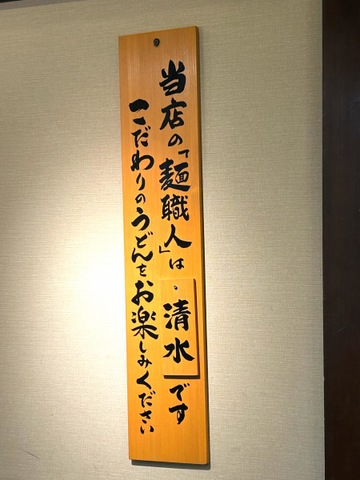 当店の「麺職人」は、清水です
こだわりのうどんをお楽しみください